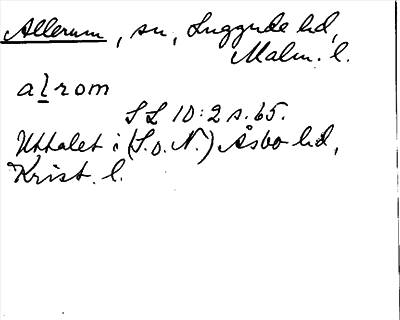 Allerum, sn, Luggude hd,
Malm. l.
alrom
SL 10:2 s. 65.
Uttalet i (S. o. N.) Åsbo hd,
Krist. l.